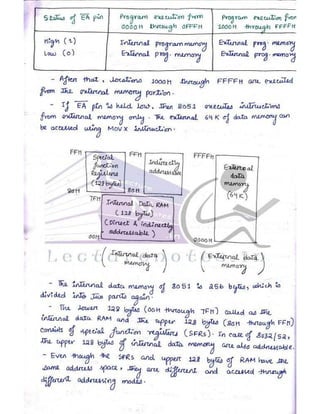 Status of EA pin | Program execution from 0000H through 0FFFH | Program execution from 1000H through FFFFH
High (1) | Internal program memory | External prog. memory
Low (0) | External prog. memory | External prog. memory
- After that, locations 1000H through FFFFH are executed
from the external memory portion.
- If EA pin is held low, the 8051 executes instructions
from external memory only. The external 64K of data memory can
be accessed using MOVX instruction.
FFH
Special
function
Registers
(128 bytes)
80H
FFH
Indirectly
addressable
80H
7FH
Internal Data RAM
(128 bytes)
(Direct & indirectly
addressable)
00H
(Internal data
memory)
FFFFH
External
data
memory
(64K)
0000H
(External data
memory)
- The internal data memory of 8051 is 256 bytes, which is
divided into two parts again -
- The lower 128 bytes (00H through 7FH) called as the
internal data RAM and the upper 128 bytes (80H through FFH)
consists of special function registers (SFRs). In case of 8032/52,
the upper 128 bytes of internal data memory are also addressable.
- Even though the SFRs and upper 128 bytes of RAM have the
same address space, they are different and accessed through
different addressing modes.